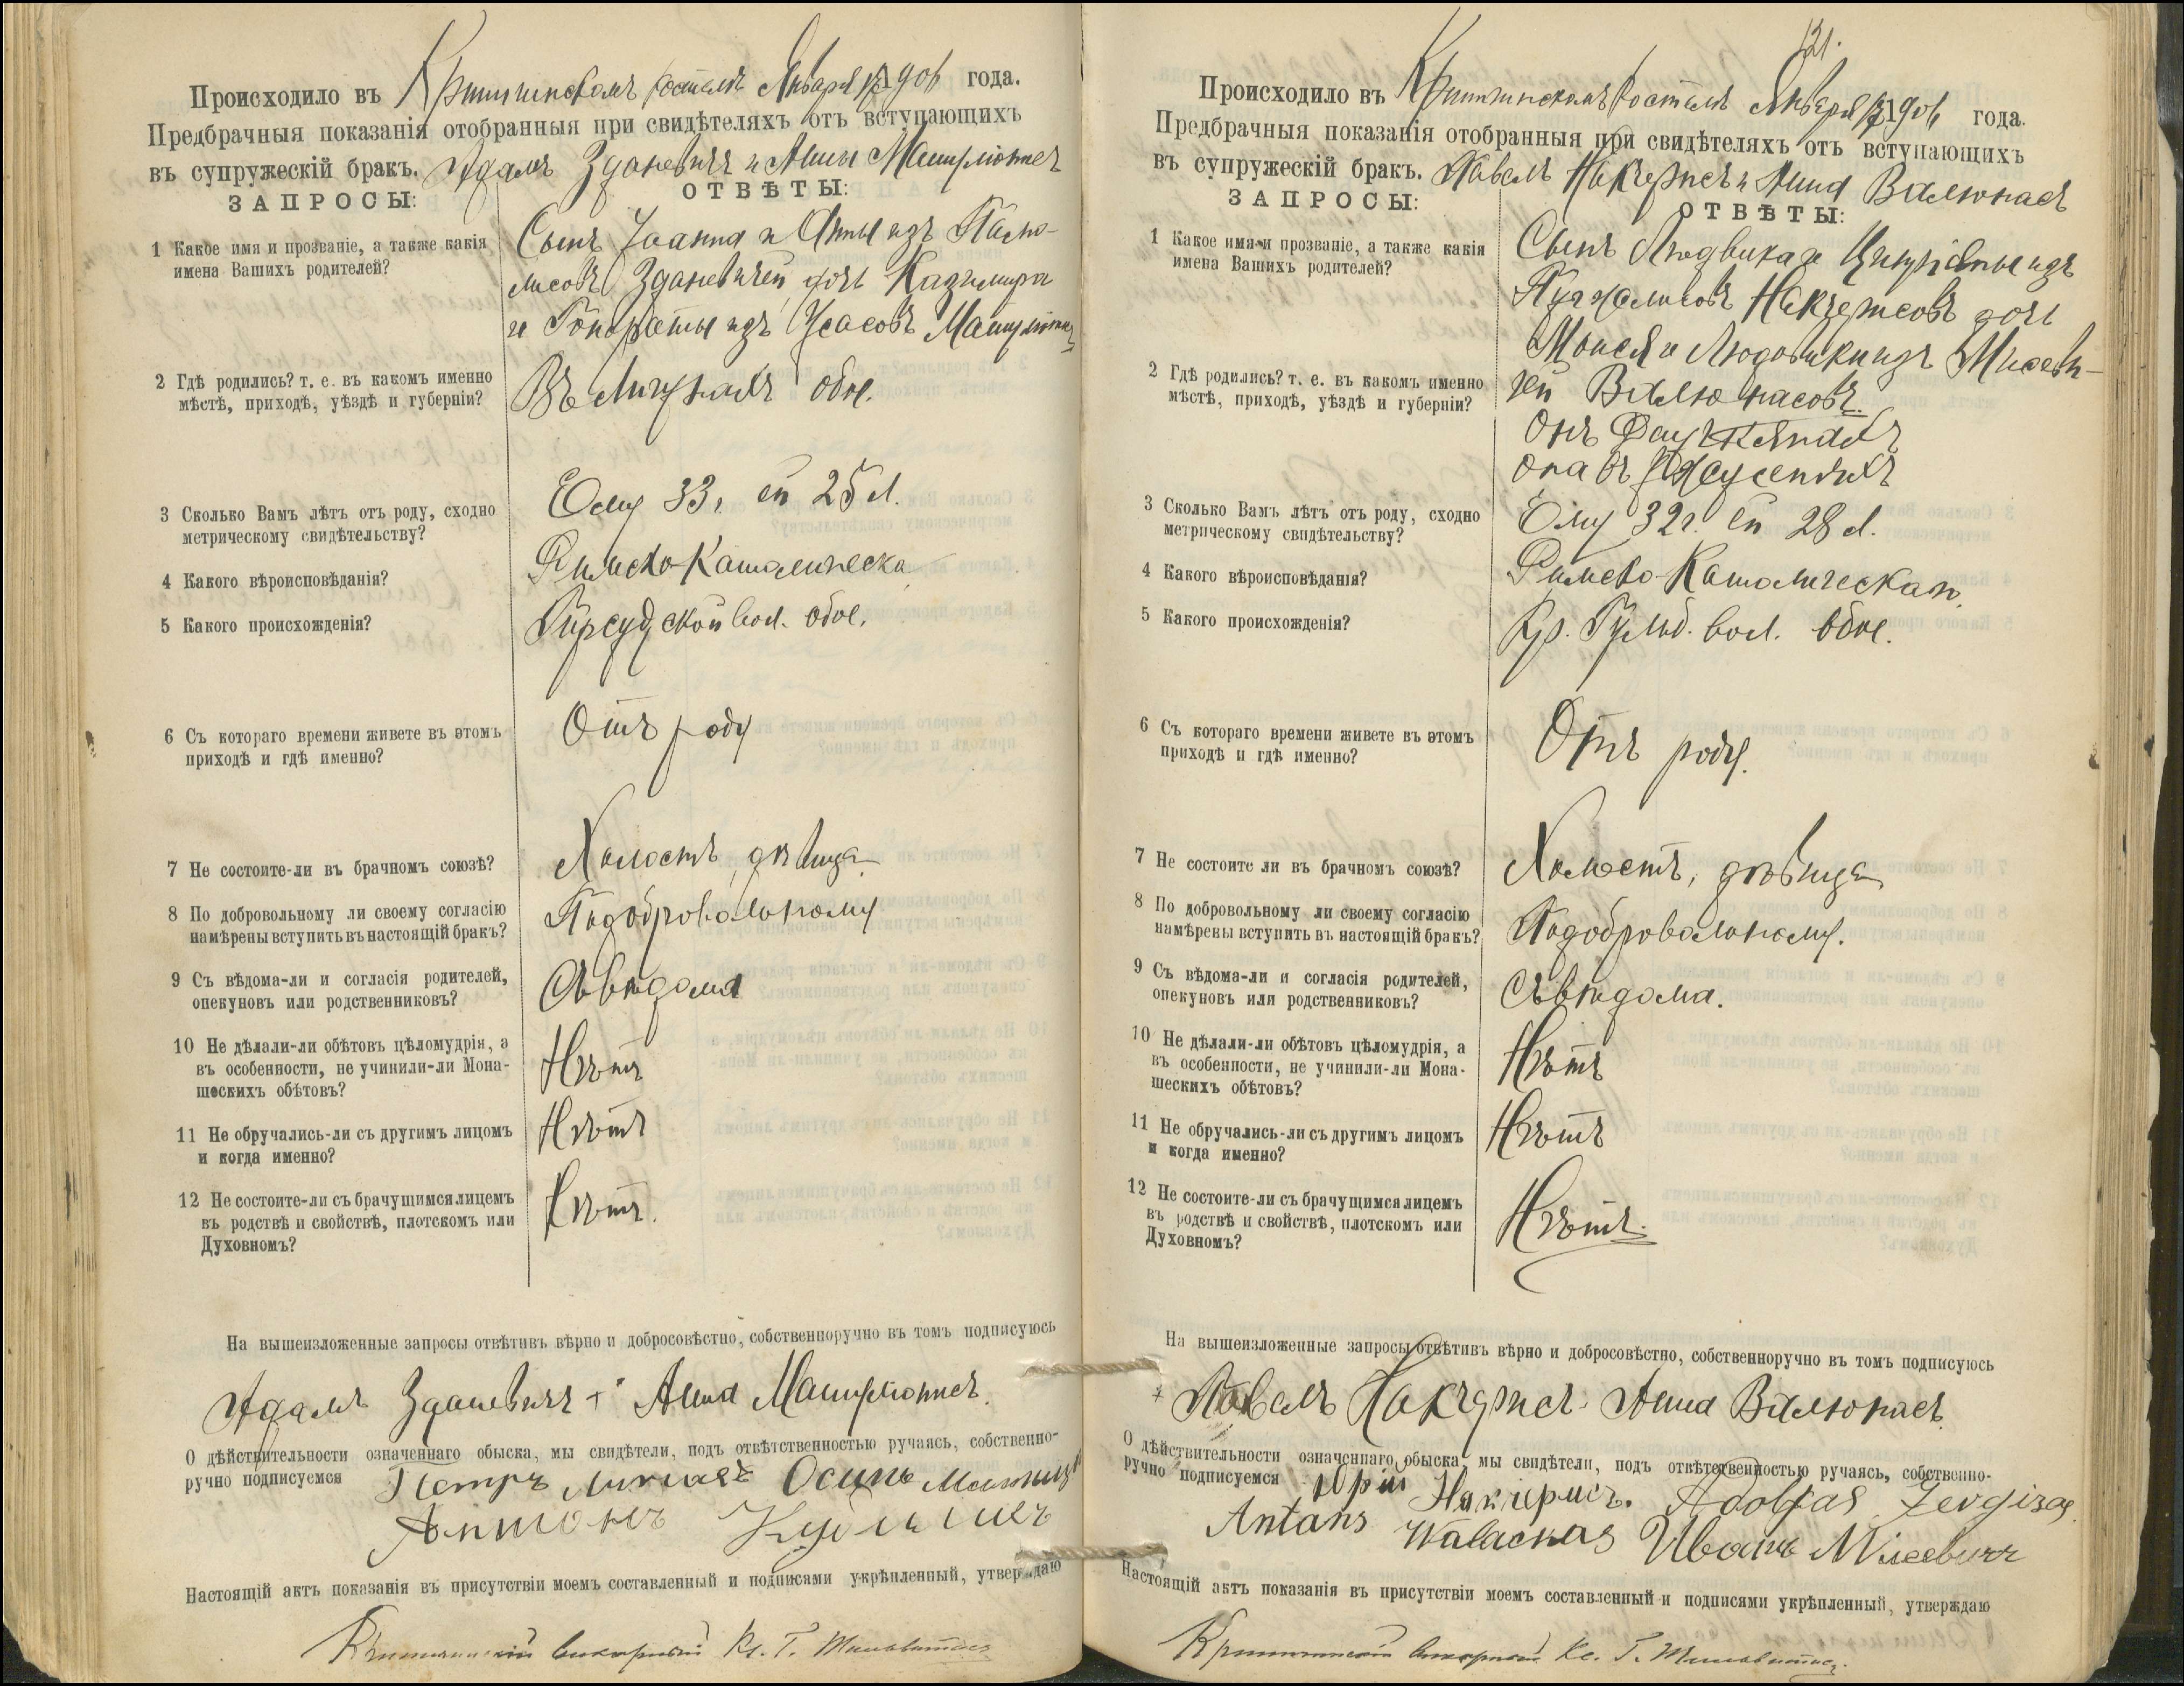 Происходило въ Января 1906 года.
Предбрачныя показанія отобранныя при свидѣтеляхъ отъ вступающихъ
въ супружескій бракъ. Адамъ Здановичъ и Анны
ЗАПРОСЫ: ОТВѢТЫ:
1 Какое имя и прозваніе, а также какія
имена Вашихъ родителей?
Сынъ Іоанна и Анны изъ
дочь Казимира
и изъ
2 Гдѣ родились? т. е. въ какомъ именно
мѣстѣ, приходѣ, уѣздѣ и губерніи?
Въ обое.
3 Сколько Вамъ лѣтъ отъ роду, сходно
метрическому свидѣтельству?
Ему 33 г. ей 25 л.
4 Какого вѣроисповѣданія?
Римско-Католическа
5 Какого происхожденія?
вол. обое.
6 Съ котораго времени живете въ этомъ
приходѣ и гдѣ именно?
Отъ роду
7 Не состоите-ли въ брачномъ союзѣ?
Холостъ, дѣвица
8 По добровольному ли своему согласію
намѣрены вступить въ настоящій бракъ?
Подобровольному
9 Съ вѣдома-ли и согласія родителей,
опекуновъ или родственниковъ?
Съвѣдома
10 Не дѣлали-ли обѣтовъ цѣломудрія, а
въ особенности, не учинили-ли Мона-
шескихъ обѣтовъ?
Нѣтъ
11 Не обручались-ли съ другимъ лицомъ
и когда именно?
Нѣтъ
12 Не состоите-ли съ брачущимся лицемъ
въ родствѣ и свойствѣ, плотскомъ или
Духовномъ?
Нѣтъ.
На вышеизложенные запросы отвѣтивъ вѣрно и добросовѣстно, собственноручно въ томъ подписуюсь
Адамъ + Анна
О дѣйствительности означеннаго обыска, мы свидѣтели, подъ отвѣтственностью ручаясь, собственно-
ручно подписуемся Петръ Осипъ
Антонъ
Настоящій актъ показанія въ присутствіи моемъ составленный и подписами укрѣпленный, утверждаю
викарный Кс. Г.
121.
Происходило въ Января 1906 года.
Предбрачныя показанія отобранныя при свидѣтеляхъ отъ вступающихъ
въ супружескій бракъ. Павелъ и Анна Валюнасъ
ЗАПРОСЫ: ОТВѢТЫ:
1 Какое имя и прозваніе, а также какія
имена Вашихъ родителей?
Сынъ Людвика и изъ
дочь
и изъ
Валюнасовъ.
2 Гдѣ родились? т. е. въ какомъ именно
мѣстѣ, приходѣ, уѣздѣ и губерніи?
Онъ
она въ
3 Сколько Вамъ лѣтъ отъ роду, сходно
метрическому свидѣтельству?
Ему 32 г. ей 28 л.
4 Какого вѣроисповѣданія?
Римско-Католическаго.
5 Какого происхожденія?
Кр. вол. обое.
6 Съ котораго времени живете въ этомъ
приходѣ и гдѣ именно?
Отъ роду.
7 Не состоите ли въ брачномъ союзѣ?
Холостъ, дѣвица
8 По добровольному ли своему согласію
намѣрены вступить въ настоящій бракъ?
Подобровольному.
9 Съ вѣдома-ли и согласія родителей,
опекуновъ или родственниковъ?
Съвѣдома.
10 Не дѣлали-ли обѣтовъ цѣломудрія, а
въ особенности, не учинили-ли Мона-
шескихъ обѣтовъ?
Нѣтъ
11 Не обручались-ли съ другимъ лицомъ
и когда именно?
Нѣтъ
12 Не состоите-ли съ брачущимся лицемъ
въ родствѣ и свойствѣ, плотскомъ или
Духовномъ?
Нѣтъ.
На вышеизложенные запросы отвѣтивъ вѣрно и добросовѣстно, собственноручно въ томъ подписуюсь
+ Павелъ Анна Валюнасъ
О дѣйствительности означеннаго обыска, мы свидѣтели, подъ отвѣтственностью ручаясь, собственно-
ручно подписуемся Юрій Adolfas
Antans Иванъ
Настоящій актъ показанія въ присутствіи моемъ составленный и подписями укрѣпленный, утверждаю
викарный Кс. Г.